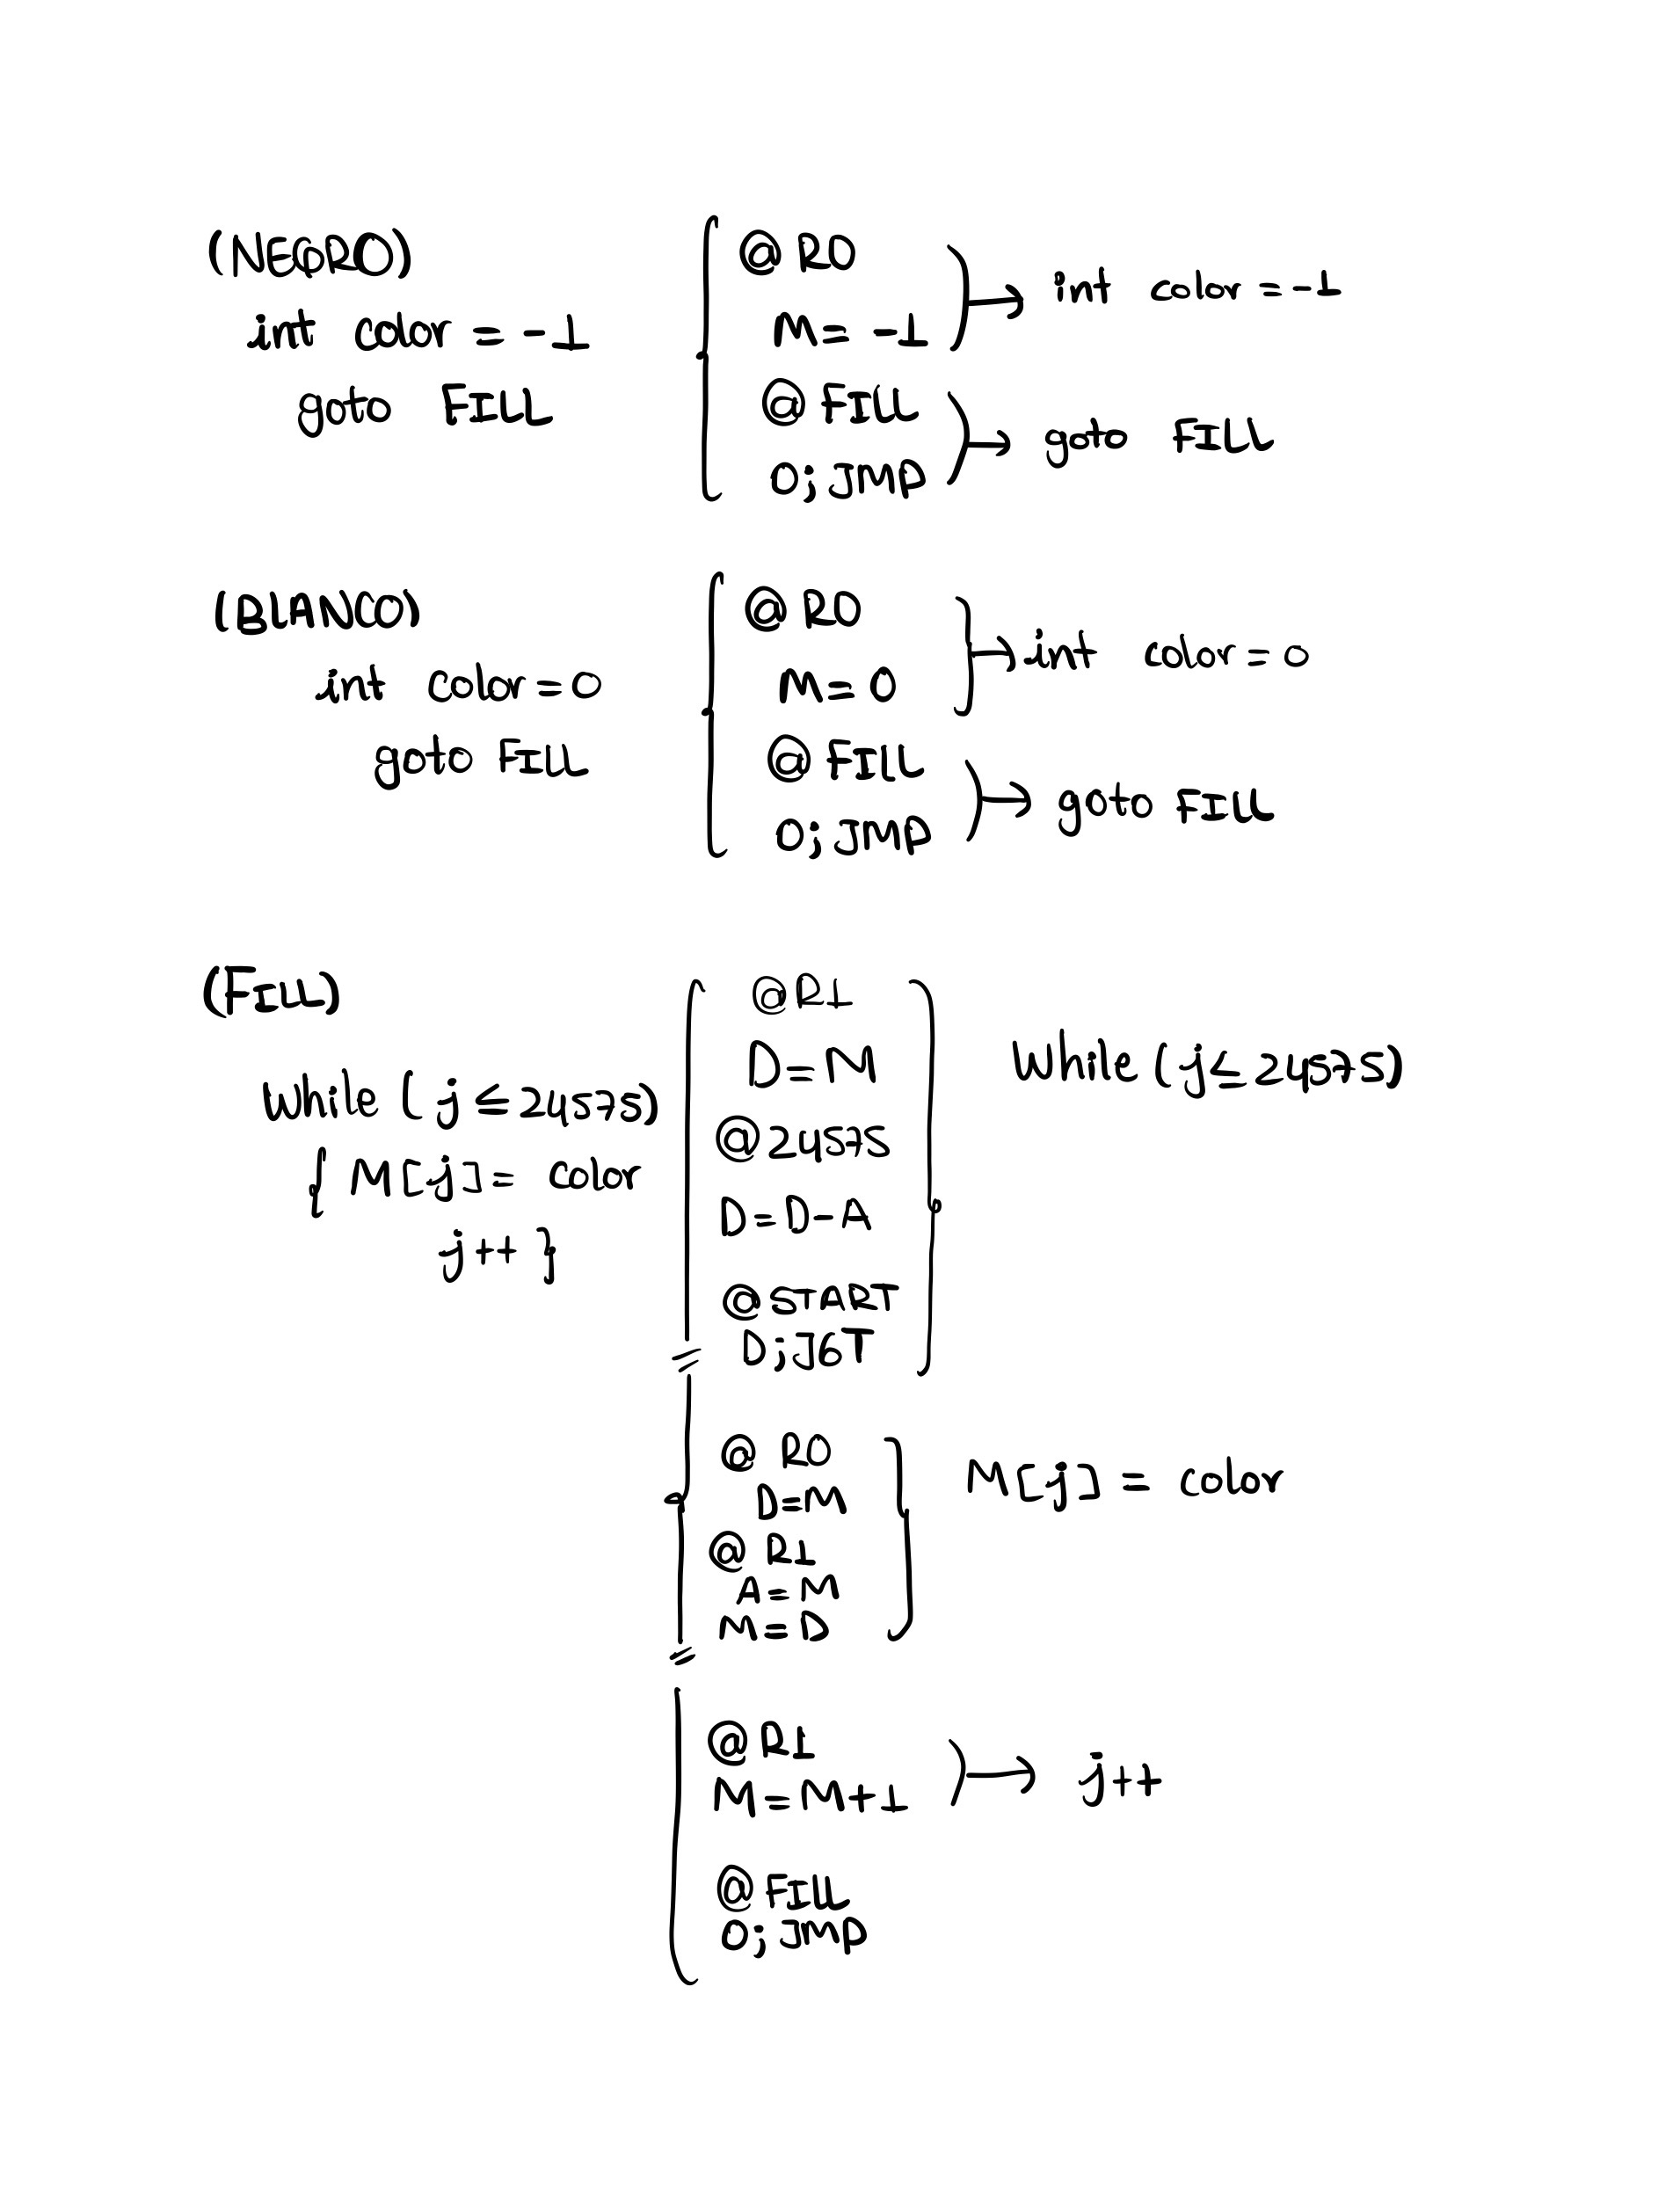 (NEGRO)
int color = -1
goto FILL
@ R0
M = -1
@ FILL
0; JMP
int color = -1
goto FILL
(BLANCO)
int color = 0
goto FILL
@ R0
M = 0
@ FILL
0; JMP
int color = 0
goto FILL
(FILL)
while (j ≤ 24575)
{ M[j] = color
j++ }
@R1
D = M
@24575
D = D - A
@START
D; JGT
While (j ≤ 24575)
@ R0
D = M
@ R1
A = M
M = D
M[j] = color
@ R1
M = M + 1
j++
@ FILL
0; JMP